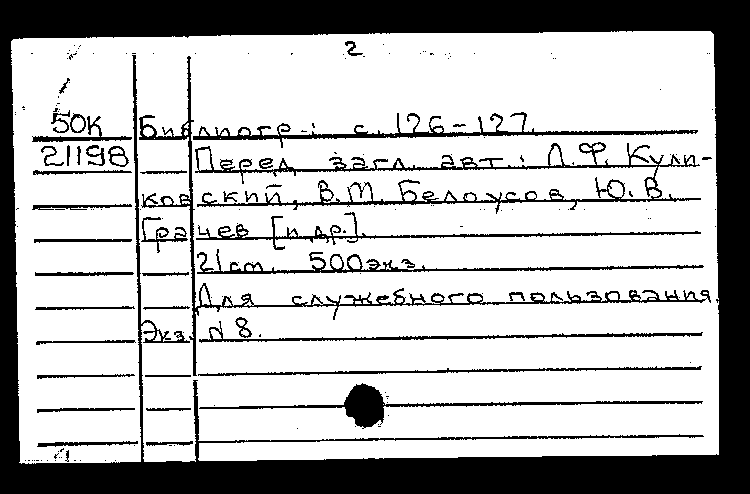 2
50К Библиогр.: с. 126-127.
21198 Перед загл. авт.: Л.Ф. Кули-
ковский, В.М. Белоусов, Ю.В.
Грачев [и др.].
21 cm. 500 экз.
Для служебного пользования.
Экз. N 8.